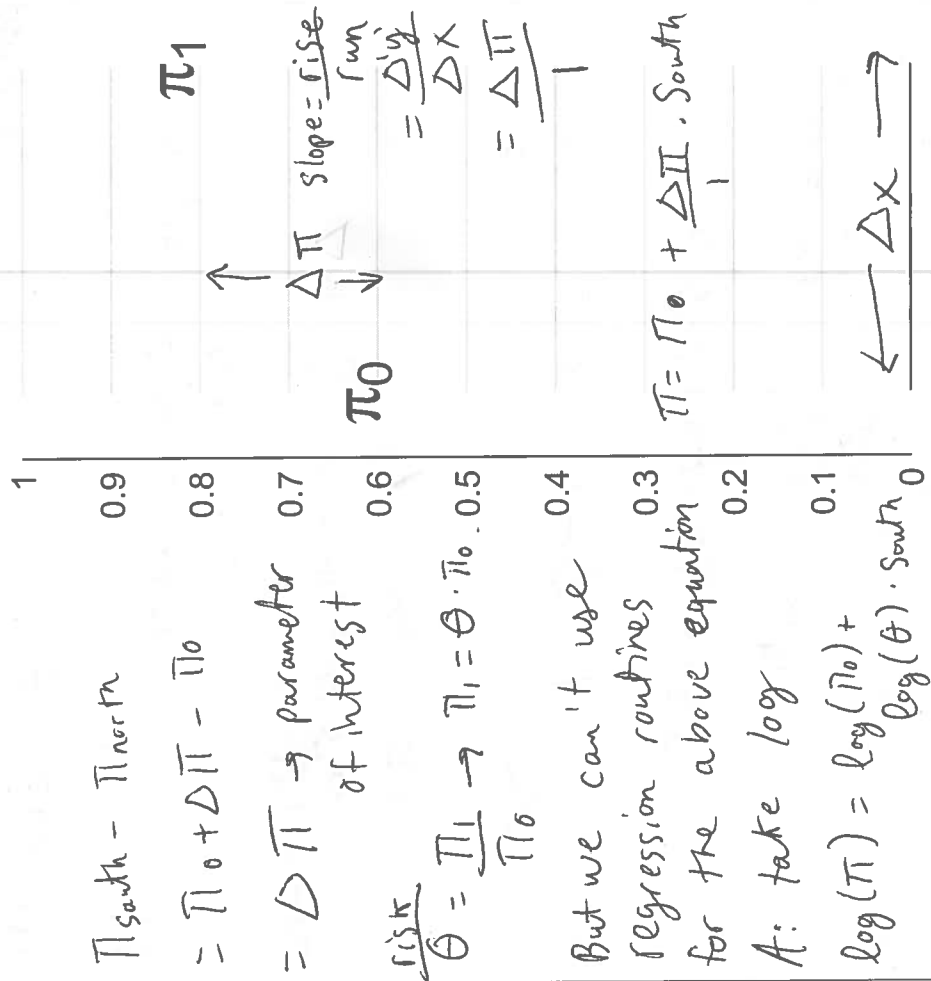 Π south - Π north
= Π0 + ΔΠ - Π0
= ΔΠ → parameter
of interest
risk
θ = Π1 / Π0 → Π1 = θ · Π0.
But we can't use
regression routines
for the above equation
A: take log
log(Π) = log(Π0) +
log(θ) · south
1
0.9
0.8
0.7
0.6
0.5
0.4
0.3
0.2
0.1
0
π1
π0
ΔΠ
slope = rise / run
= Δy / Δx
= ΔΠ / 1
Π = Π0 + ΔΠ / 1 . South
← Δx →